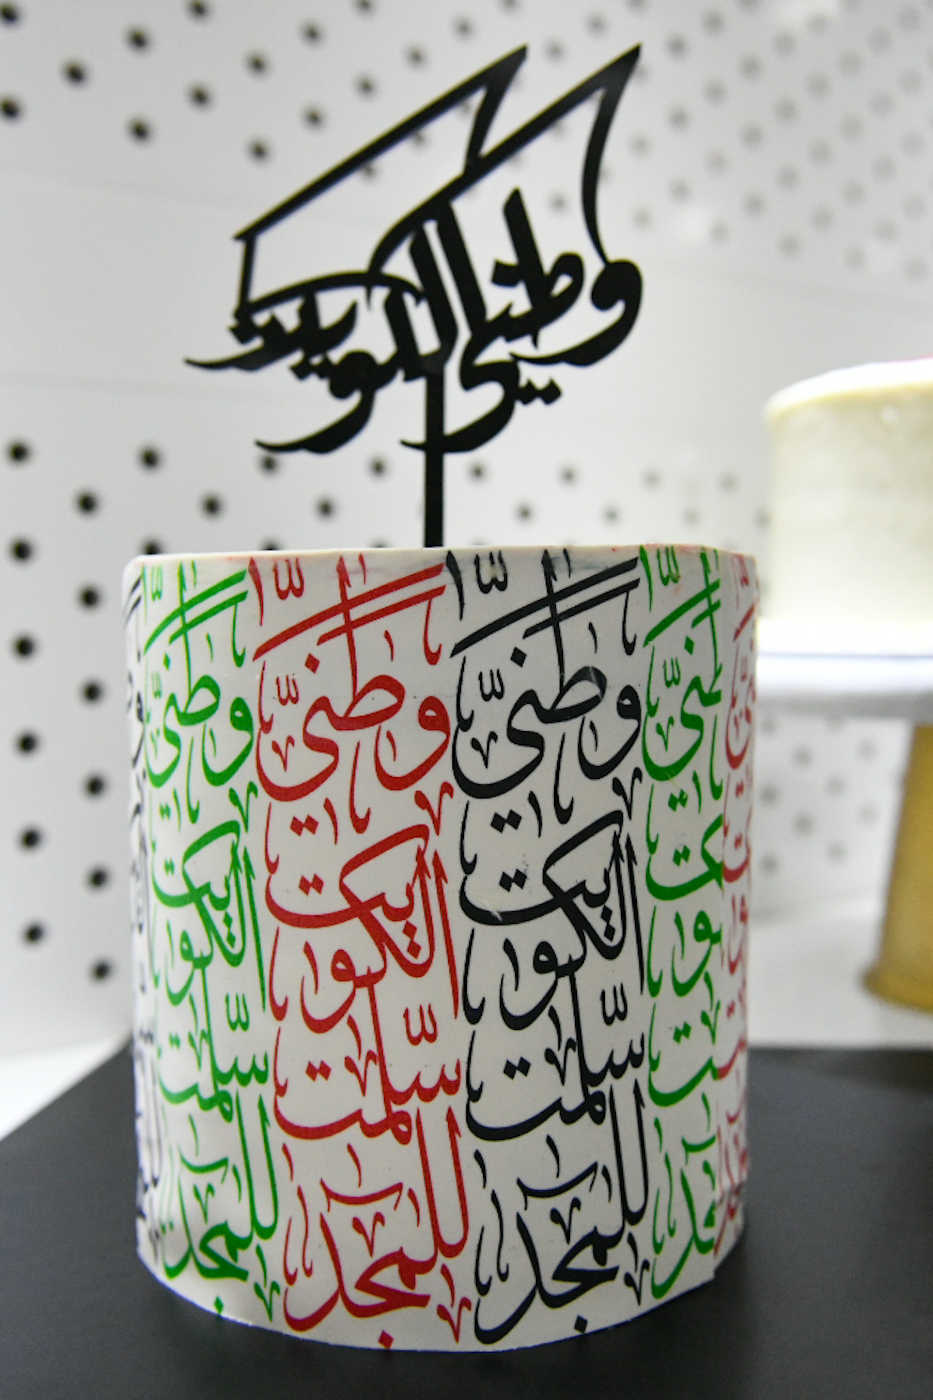 وطني الكويت
وطني وطني وطني وطني
الكويت الكويت الكويت
سلمت سلمت سلمت
للمجد للمجد للمجد